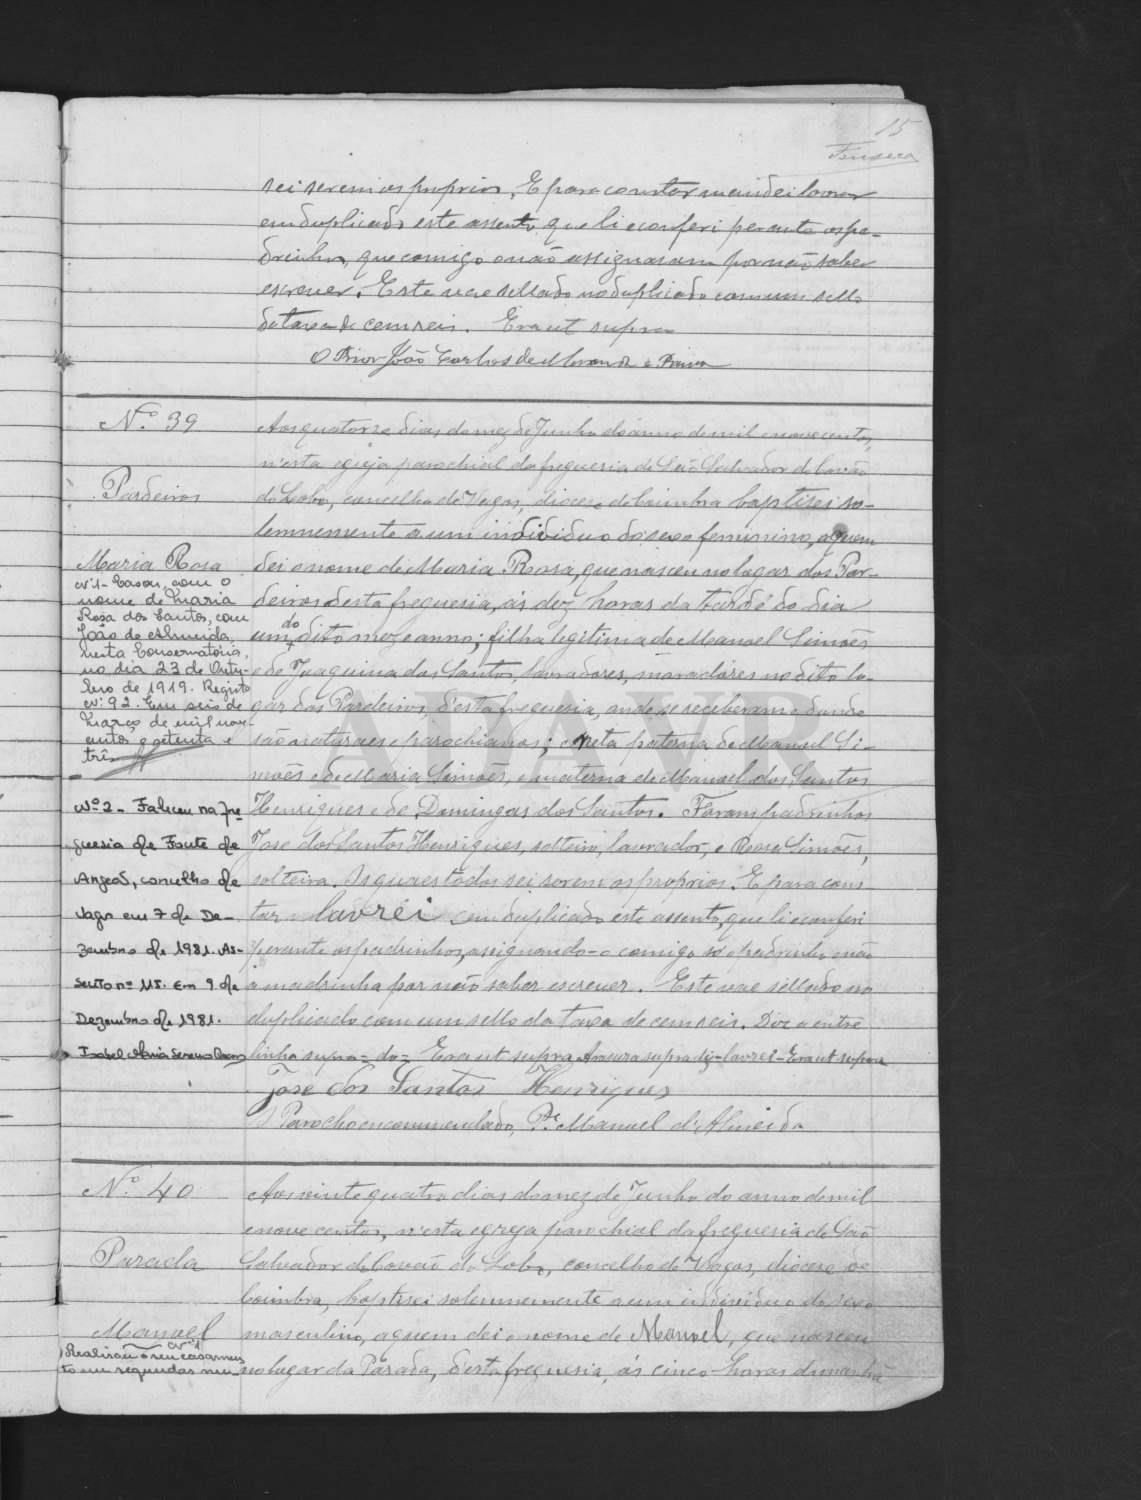 15
Fonseca
sei serem os proprios. E para constar mandei lavrar
em duplicado este assento, que li e conferi perante os pa-
drinhos, que comigo o não assignaram por não saber
escrever. Este vae sellado no duplicado com um sello
da taxa de cem reis. Era ut supra
O Prior João Carlos de
Nº 39
Pardeiros
Maria Rosa
Nº 1- Casou, com o
nome de Maria
Rosa dos Santos, com
João de Almeida,
nesta Conservatória,
no dia 23 de Outu-
bro de 1919. Registo
nº 92. Em seis de
Março de mil nov-
centos e setenta e
três
Nº 2 - Faleceu na fre
guesia de Fonte de
Angeão, concelho de
Vagos em 7 de De-
zembro de 1981. As-
sento nº 115. Em 9 de
Dezembro de 1981.
Isabel Maria
Aos quatorze dias do mez de Junho do anno de mil e novecentos,
n'esta egreja parochial da freguesia de São Salvador do Covão
do Lobo, concelho de Vagos, diocese de Coimbra baptisei so-
lemnemente a um individuo do sexo feminino, a quem
dei o nome de Maria Rosa, que nasceu no logar dos Par-
deiros desta freguesia, ás dez horas da tarde do dia
um do dito mez e anno; filha legitima de Manoel Simões
e de Joaquina dos Santos, lavradores, moradores no dito lo-
gar dos Pardeiros, d'esta freguesia, onde se receberam e d'onde
são naturaes e parochianos; neta paterna de Manoel Si-
mões e de Maria Simões, e materna de Manoel dos Santos
Henriques e de Domingas dos Santos. Foram padrinhos
Jose dos Santos Henriques, solteiro, lavrador, e Rosa Simões,
solteira. Os quaes todos sei serem os proprios. E para cons
tar lavrei em duplicado este assento, que li e conferi
perante os padrinhos, assignando-o comigo só o padrinho e não
a madrinha por não saber escrever. Este vae sellado no
duplicado com um sello da taxa de cem reis. Diz a entre
linha supra = do = Era ut supra. A rasura supra diz - lavrei - Era ut supra
Jose dos Santos Henriques
O Parocho encommendado, Pe Manuel d'Almeida
Nº 40
Parada
Manoel
Nº 1
Realisou o seu casamen
to em segundas nu-
Aos vinte quatro dias do mez de Junho do anno de mil
e nove centos, n'esta egreja parochial da freguesia de São
Salvador do Covão do Lobo, concelho de Vagos, diocese de
Coimbra, baptisei solemnemente a um individuo do sexo
masculino, a quem dei o nome de Manoel, que nasceu
no logar da Parada, d'esta freguesia, ás cinco horas da manhã
ADAVR